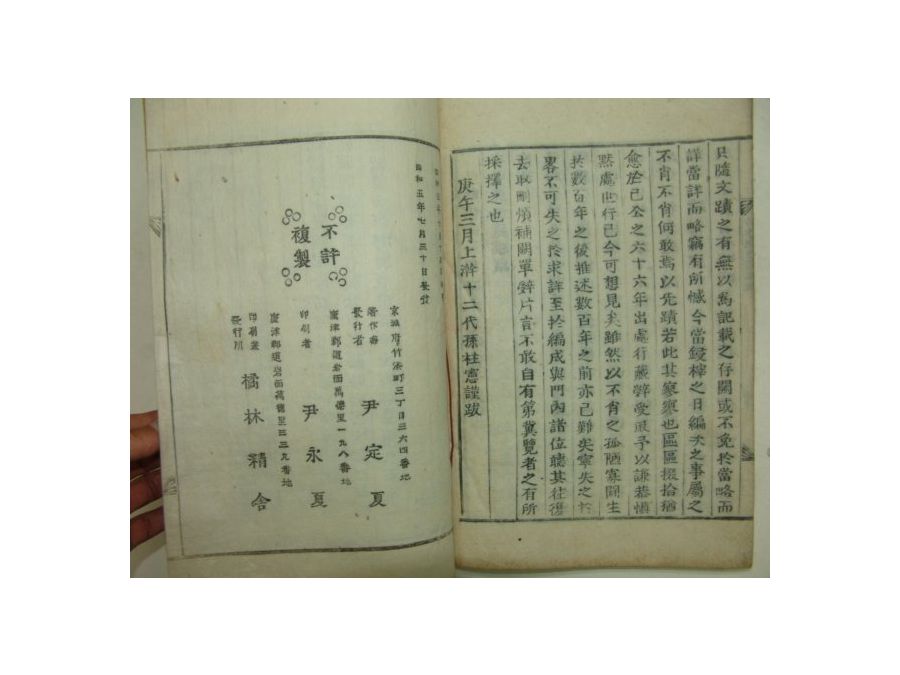 只隨文蹟之有無以爲記載之存闕或不免於當略而
詳當詳而略竊有所憾今當鋟梓之日編次之事屬之
不肖不肖何敢焉以先蹟若此其寥寥也區區掇拾猶
愈於已公之六十六年出處行藏辭受取予以謙恭愼
默處世行己今可想見矣雖然以不肖之孤陋寡聞生
於數百年之後推述數百年之前亦已難矣寧失之於
畧不可失之於求詳至於編成與門內諸位聽其往復
去取刪煩補闕單辭片言不敢自有第冀覽者之有所
採擇之也
庚午三月上澣十二代孫柱憲謹跋
昭和五年七月三十日發行
不許
複製
竹添町三丁目三六四番地
著作者
發行者 尹定夏
康津郡道岩面萬德里一九八番地
印刷者 尹永夏
康津郡道岩面萬德里三三九番地
印刷兼
發行所 橘林精舍